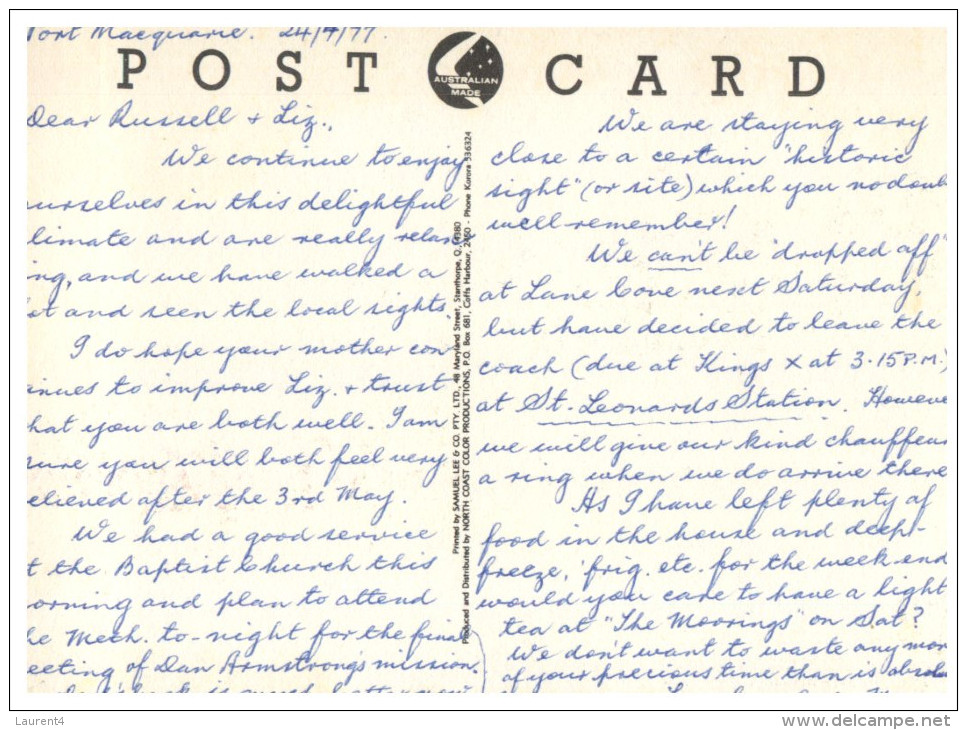 Port Macquarie. 24/4/77.
POST CARD
AUSTRALIAN
MADE
Dear Russell & Liz.,
We continue to enjoy
urselves in this delightful
limate and are really relax
ng, and we have walked a
ot and seen the local sights.
I do hope your mother con
inues to improve Liz. & trust
hat you are both well. I am
sure you will both feel very
elieved after the 3rd May.
We had a good service
t the Baptist Church this
orning and plan to attend
he Meth. to-night for the final
eeting of Dan Armstrong's mission.
Printed by SAMUEL LEE & CO. PTY. LTD., 48 Maryland Street, Stanthorpe, Q. 4380
Produced and Distributed by NORTH COAST COLOR PRODUCTIONS, P.O. Box 681, Coffs Harbour, 2450 - Phone Korora 536324
We are staying very
close to a certain "historic
sight" (or site) which you no doub
well remember!
We can't be "dropped off"
at Lane Cove next Saturday,
but have decided to leave the
coach (due at Kings X at 3.15 P.M.)
at St. Leonards Station. Howeve
we will give our kind chauffeur
a ring when we do arrive there
As I have left plenty of
food in the house and deep-
freeze, 'frig. etc. for the week-end
would you care to have a light
tea at "The Moorings" on Sat?
We don't want to waste any mor
of your precious time than is absolu
Laurent4
www.delcampe.net